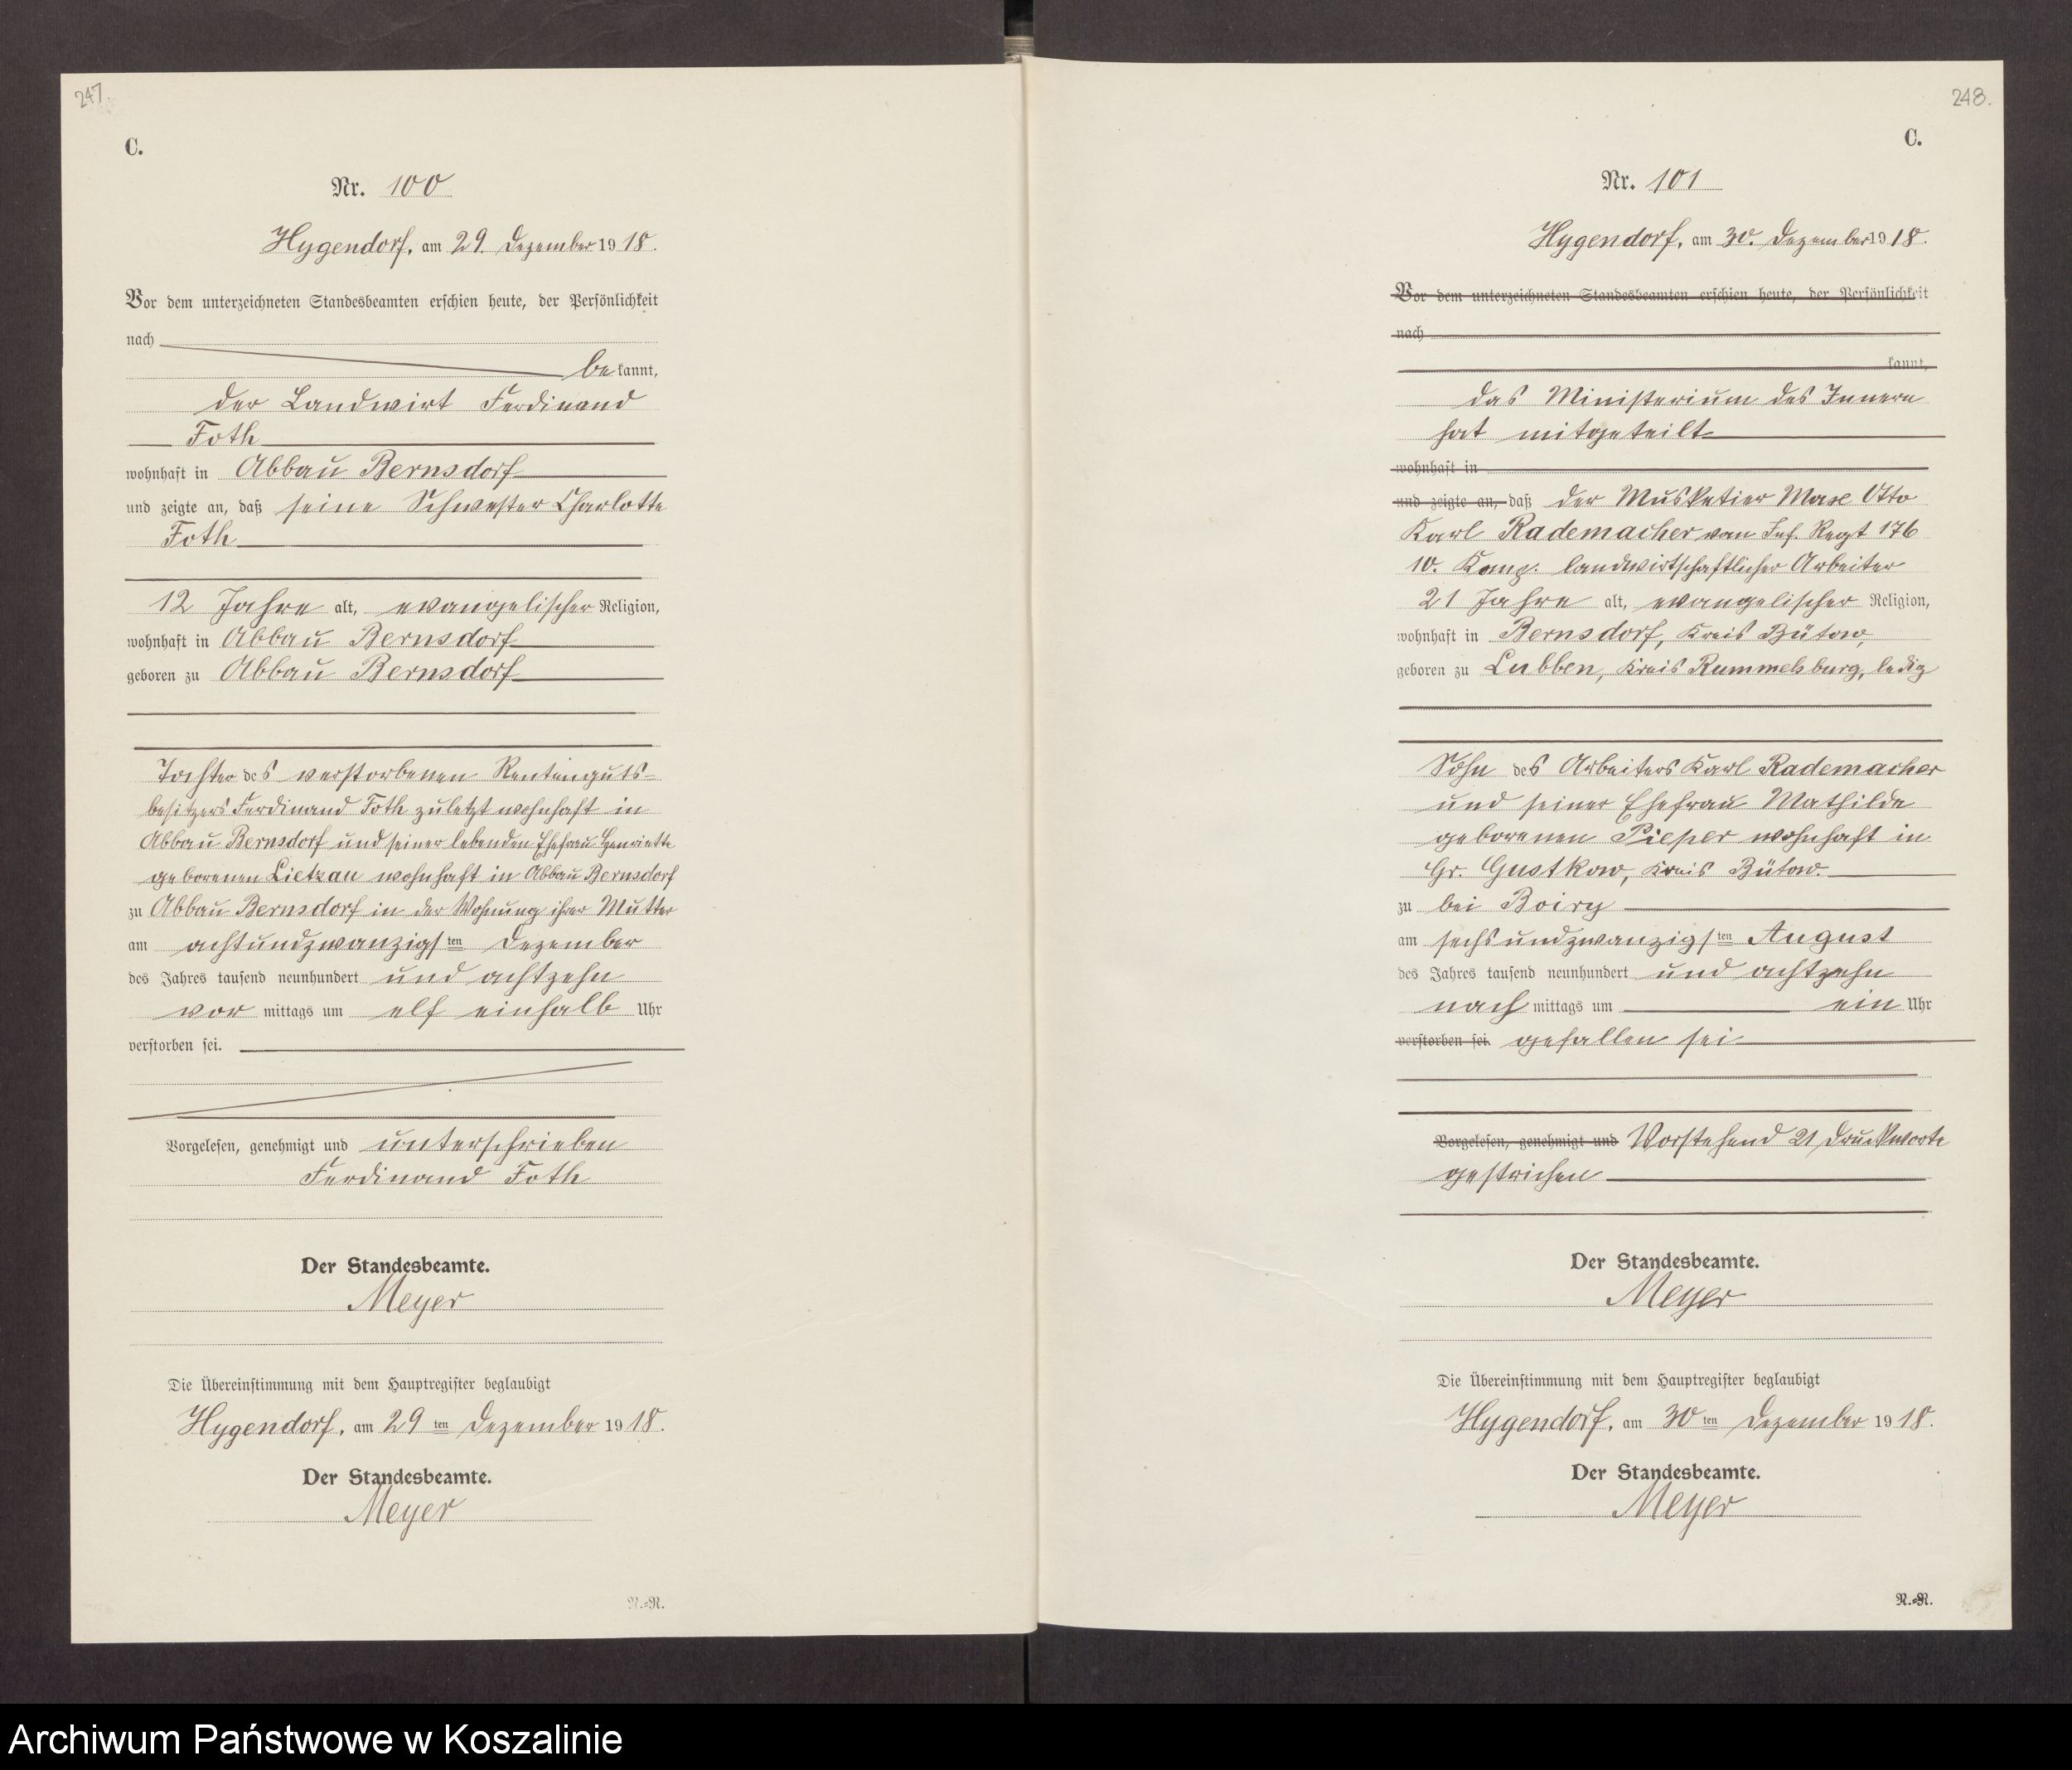 247.
C.
Nr. 100
Hygendorf, am 29. Dezember 1918.
Vor dem unterzeichneten Standesbeamten erschien heute, der Persönlichkeit
nach
be kannt,
der Landwirt Ferdinand
Foth
wohnhaft in Abbau Bernsdorf
und zeigte an, daß seine Schwester Charlotte
Foth
12 Jahre alt, evangelischer Religion,
wohnhaft in Abbau Bernsdorf
geboren zu Abbau Bernsdorf
Tochter des verstorbenen Rentenguts-
besitzers Ferdinand Foth zuletzt wohnhaft in
Abbau Bernsdorf und seiner lebenden Ehefrau Henriette
geborenen Lietzau wohnhaft in Abbau Bernsdorf
zu Abbau Bernsdorf in der Wohnung ihrer Mutter
am achtundzwanzigsten Dezember
des Jahres tausend neunhundert und achtzehn
vor mittags um elf einhalb Uhr
verstorben sei.
Vorgelesen, genehmigt und unterschrieben
Ferdinand Foth
Der Standesbeamte.
Meyer
Die Übereinstimmung mit dem Hauptregister beglaubigt
Hygendorf, am 29ten Dezember 1918.
Der Standesbeamte.
Meyer
N.-R.
248.
C.
Nr. 101
Hygendorf, am 30. Dezember 1918.
Vor dem unterzeichneten Standesbeamten erschien heute, der Persönlichkeit
nach
kannt,
das Ministerium des Innern
hat mitgeteilt
wohnhaft in
und zeigte an, daß der Musketier Max Otto
Karl Rademacher vom Inf. Regt 176
10. Komp. landwirtschaftlicher Arbeiter
21 Jahre alt, evangelischer Religion,
wohnhaft in Bernsdorf, Kreis Bütow,
geboren zu Lubben, Kreis Rummelsburg, ledig
Sohn des Arbeiters Karl Rademacher
und seiner Ehefrau Mathilde
geborenen Pieper wohnhaft in
Gr. Gustkow, Kreis Bütow.
zu bei Boiry
am sechsundzwanzigsten August
des Jahres tausend neunhundert und achtzehn
nach mittags um ein Uhr
verstorben sei. gefallen sei
Vorgelesen, genehmigt und Vorstehend 21 Druckworte
gestrichen
Der Standesbeamte.
Meyer
Die Übereinstimmung mit dem Hauptregister beglaubigt
Hygendorf, am 30ten Dezember 1918.
Der Standesbeamte.
Meyer
N.-R.
Archiwum Państwowe w Koszalinie